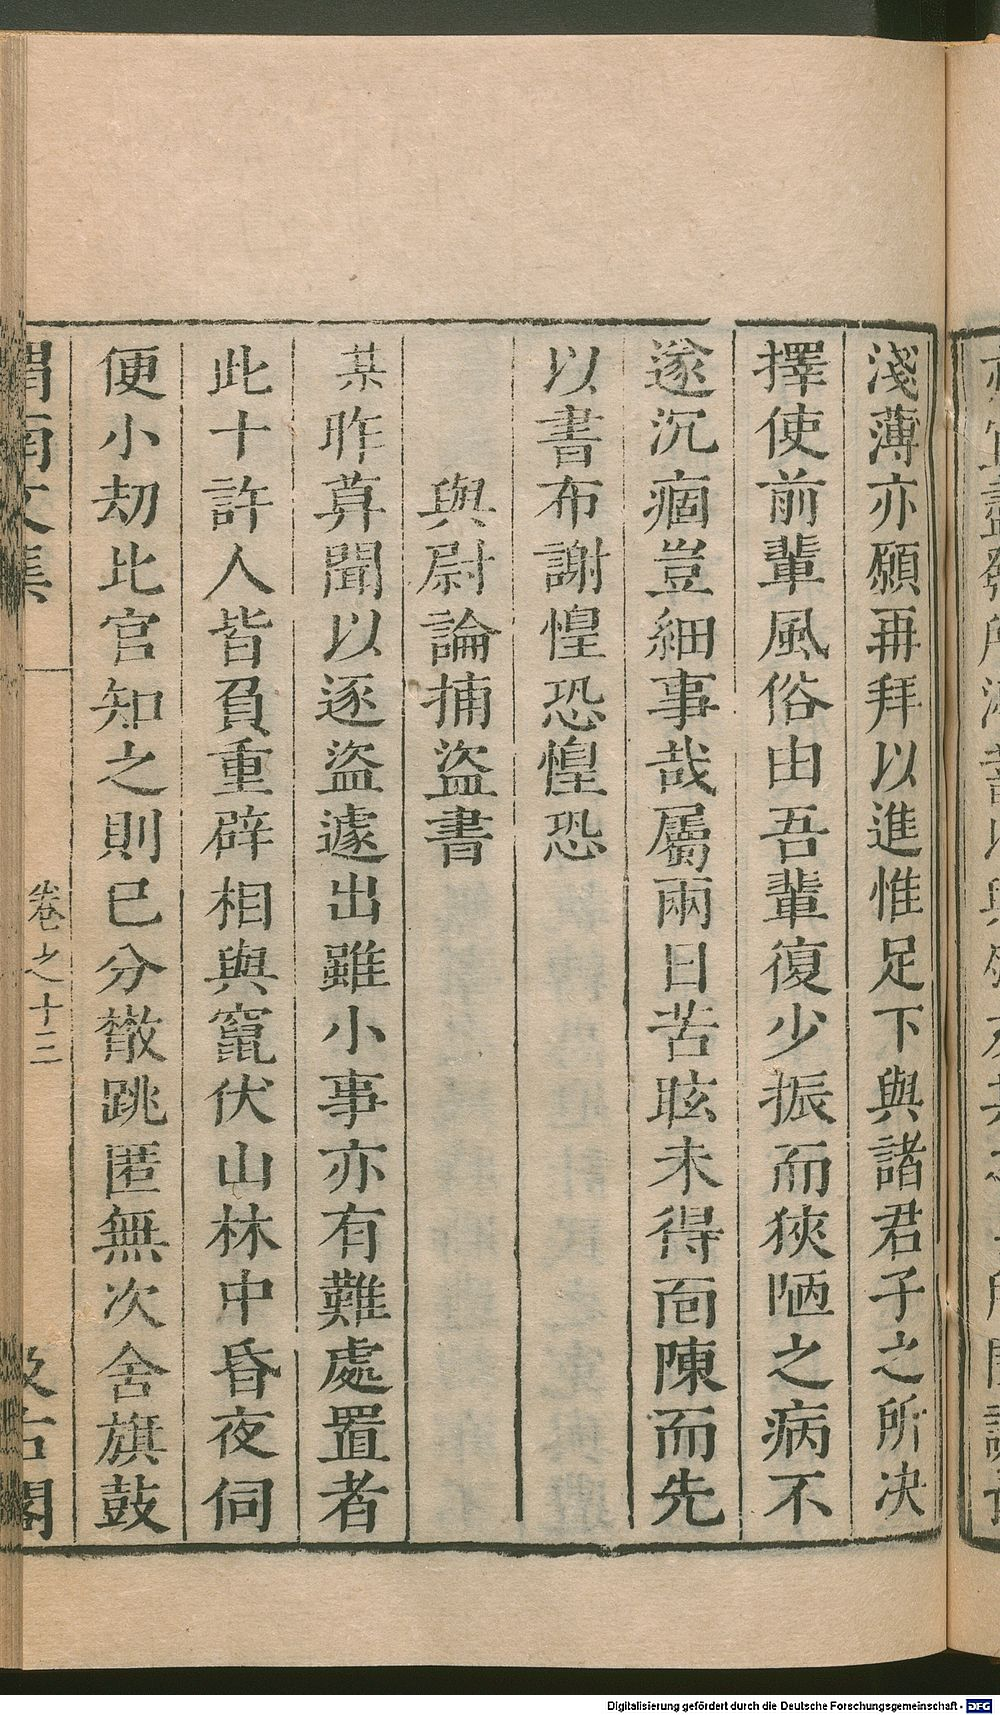 淺薄亦願再拜以進惟足下與諸君子之所决
擇使前輩風俗由吾輩復少振而狹陋之病不
遂沉痼豈細事哉屬兩日苦眩未得面陳而先
以書布謝惶恐惶恐
與尉論捕盜書
某昨莫聞以逐盜遽出雖小事亦有難處置者
此十許人皆負重辟相與竄伏山林中昏夜伺
便小刼比官知之則已分散跳匿無次舍旗鼓
渭南文集
卷之十三
汲古閣
Digitalisierung gefördert durch die Deutsche Forschungsgemeinschaft - DFG